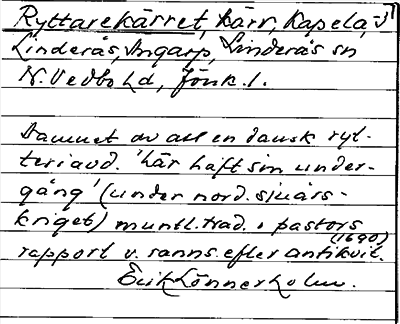 Ryttarekärret, Kärr, Kapela,
Linderås, Ingarp, Linderås sn
N. Vedbo hd, Jönk. l.
Damnet av att en dansk ryt-
teriavd. 'här haft sin under-
gång' (under nord. sjuårs-
kriget) muntl. trad. o pastors
rapport v. ranns. efter antikvit.
(1690)
Erik Lönnerholm.